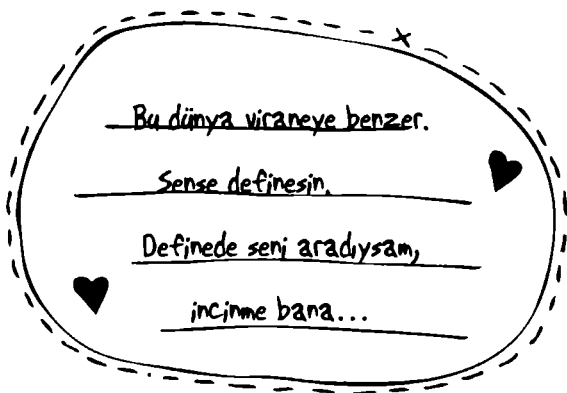 Bu dünya viraneye benzer.
Sense definesin.
Definede seni aradıysam,
incinme bana...